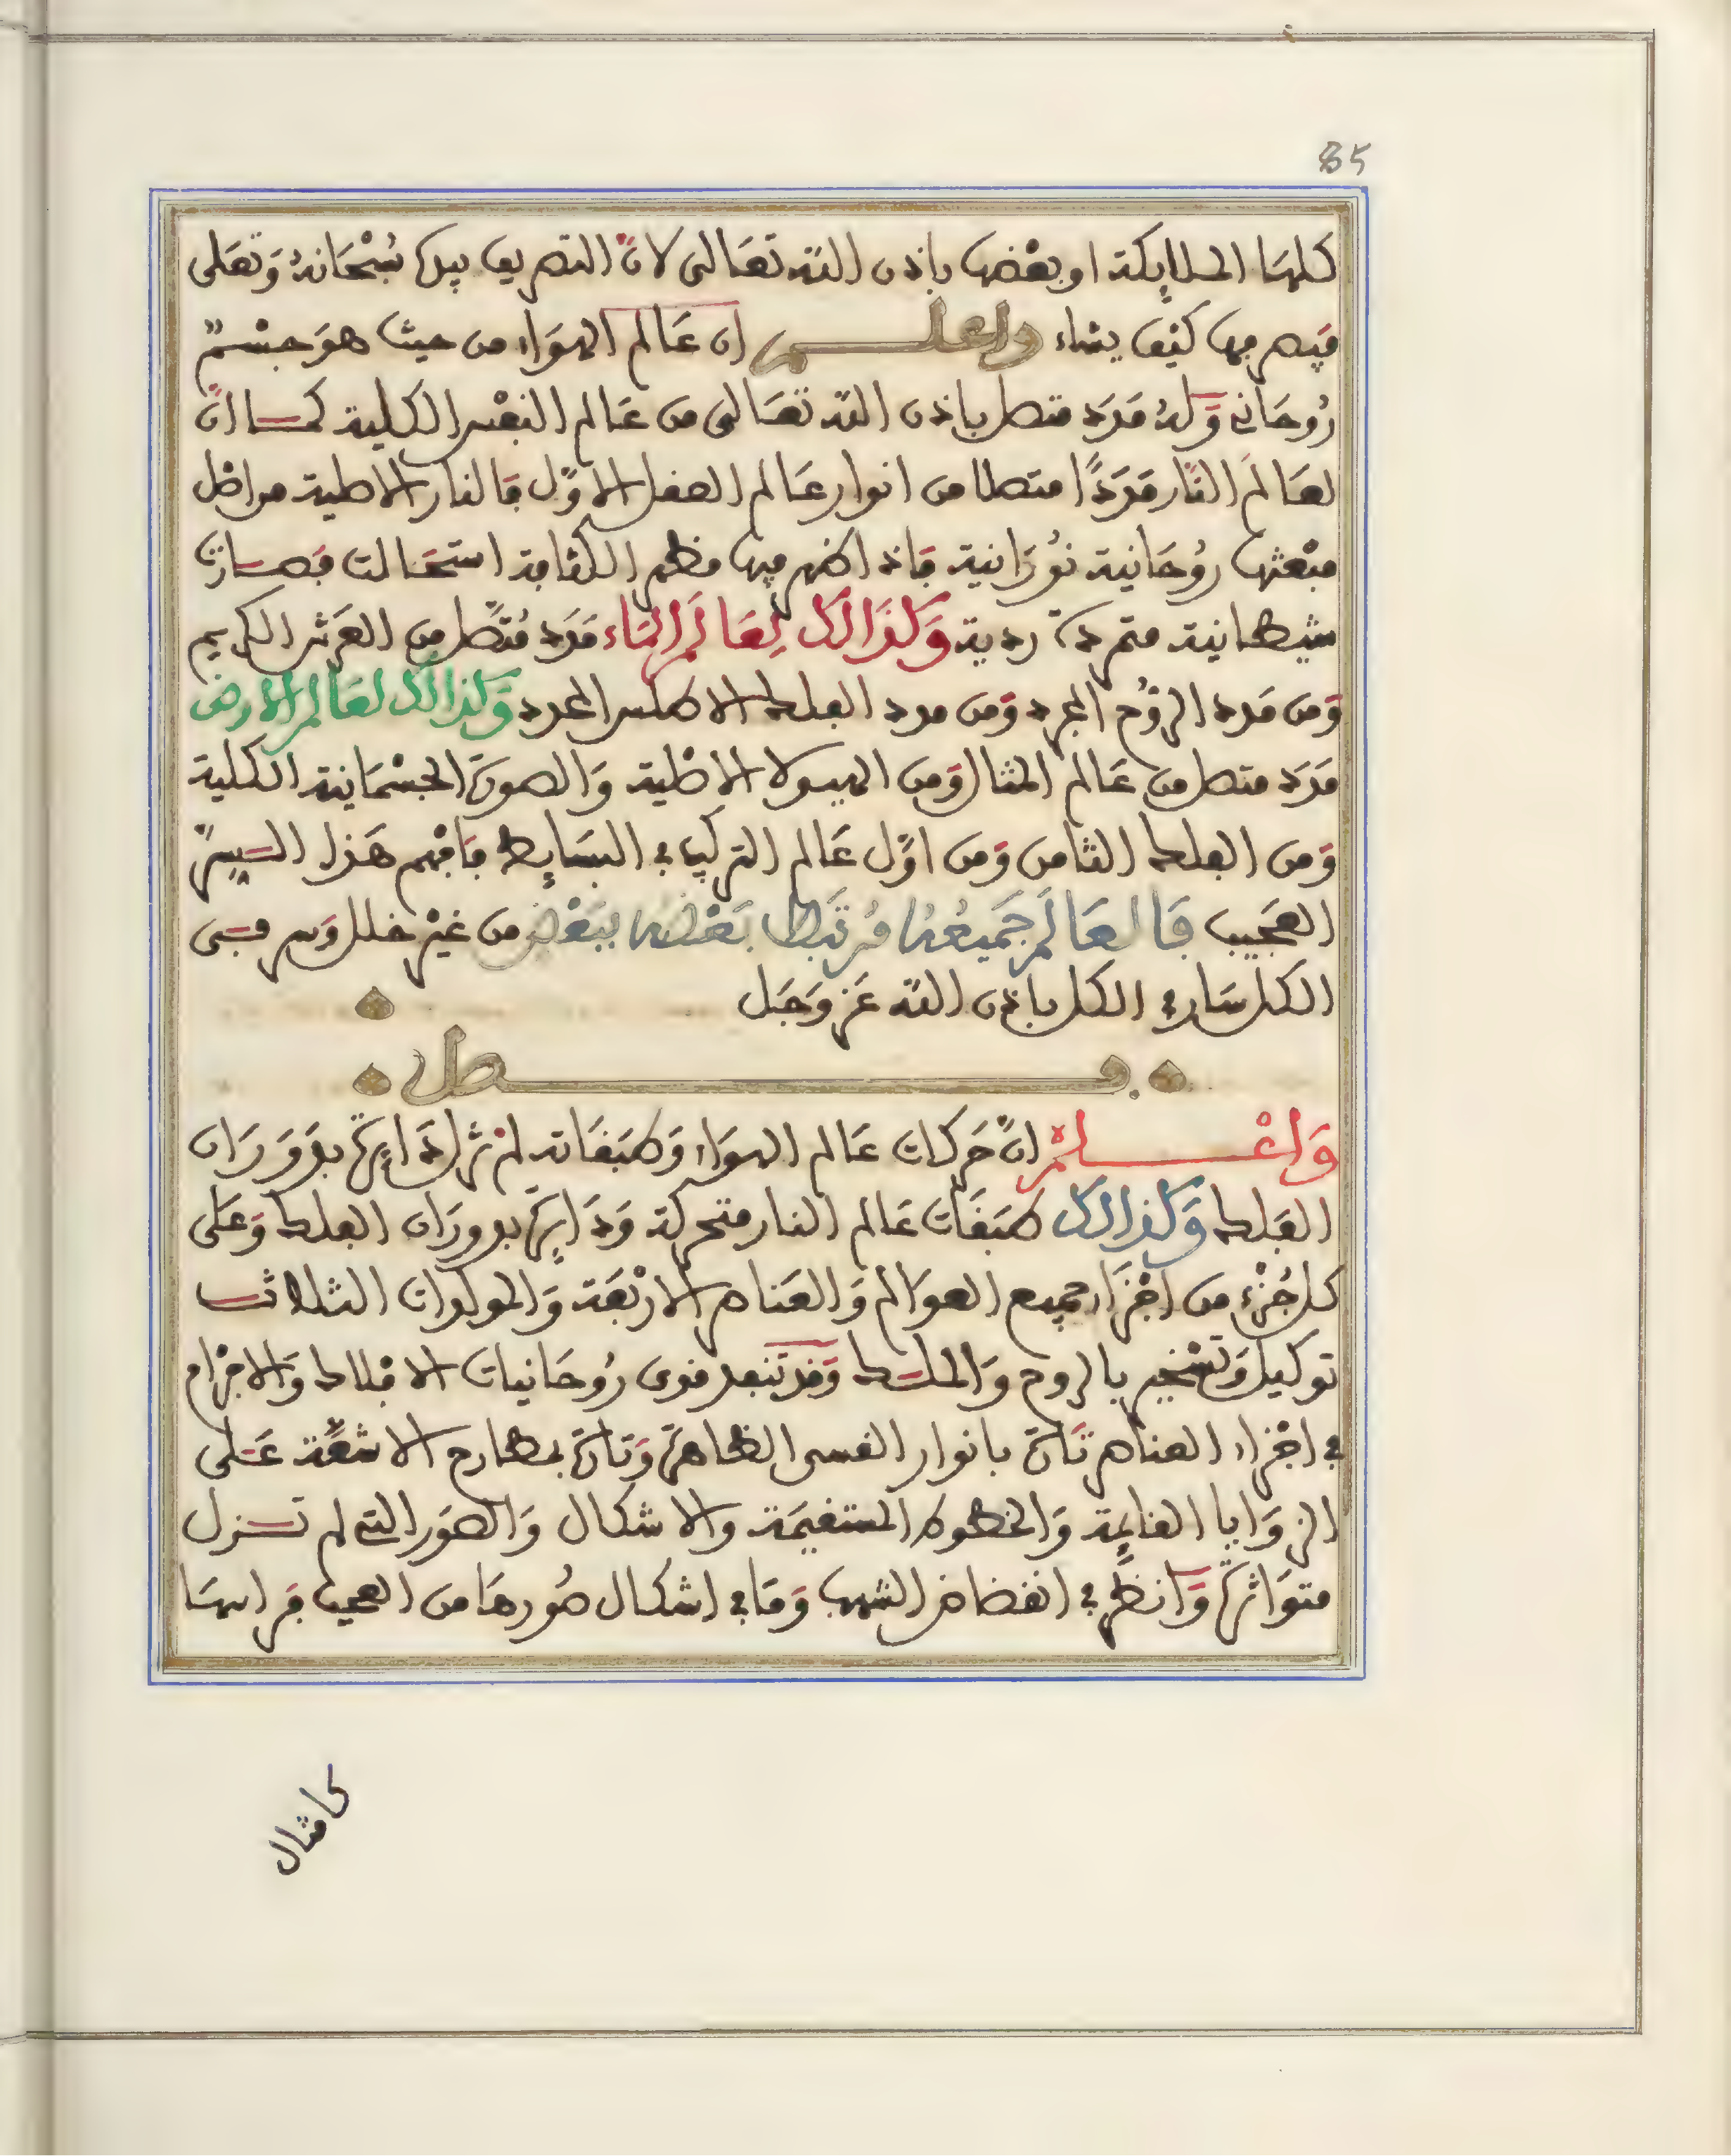 85
كلها الملايكة او بعضها باذن الله تعالى لانّ التصريف بيده سُبْحَانهُ وَتعَلى
فيصرفها كيْف يشاء واعلم ان عَالم الهوَاء من حيث هوَ جسْمٌ
رُوحَاني وَلهُ مَدَد متصل باذن الله تعَالى من عَالم النفْس الكلية كما انّ
لعَالَم النَّار مَدَدًا متصلا من انوار عَالم العقل الاوّل فالنار الاصلية من اصْل
مبْعثها رُوحَانية نوُرَانية فاذا ظهر فيها مظهر الكثافة استحَالت فصارت
شيطانية متمردة ردية وَكذَالك لِعَالَم المَاء مَدَد مُتَّصل من العَرْش الكريم
وَمن مَدد الرّوُح المجرد وَمن مدد الفلك الاطلس المحدد وَكذالك لعَالم الارض
مَدَد متصل من عَالم المثال وَمن الهيولا الاصْلية وَالصورة الجسْمَانية الكلية
وَمن الفلك الثامن وَمن اوّل عَالم التركيب في البسَايط فافهم هَذا السِّرّ
العَجيب فَالعَالَم جَميعُهُ مُرتبَط بَعْضُه ببَعْض من غيْر خلل وَسر في
الكل سَار في الكل باذن الله عَز وَجَل
فصل
وَاعْلمْ انّ حَركات عَالم الهوَاء وَطبَقاته لم تزل دَايرة بدَوَرَان
الفَلك وَكذالك طبَقَات عَالم النار متحركة وَدَايرة بدورَان الفلك وَعَلى
كل جُزْء من اجْزَاء جميع العوَالم وَالعَناصر الارْبعَة وَالمولدات الثلاث
توكيل وَتسْخير بالروح وَالملك وَقد تنفد قوى رُوحَانيات الافلاك وَالاجْرَام
في اجْزاء العناصر تارة بانوار القسى الظاهرة وَتارة بمطارح الاشعّة عَلى
الزوَايا القايمة وَالخطوط المستقيمَة والاشكال وَالصوَر التي لم تزل
متوَاترة وَانظر في انقضاض الشهب وَمَا في اشكال صُورهَا من العجب فراسها
كامثال